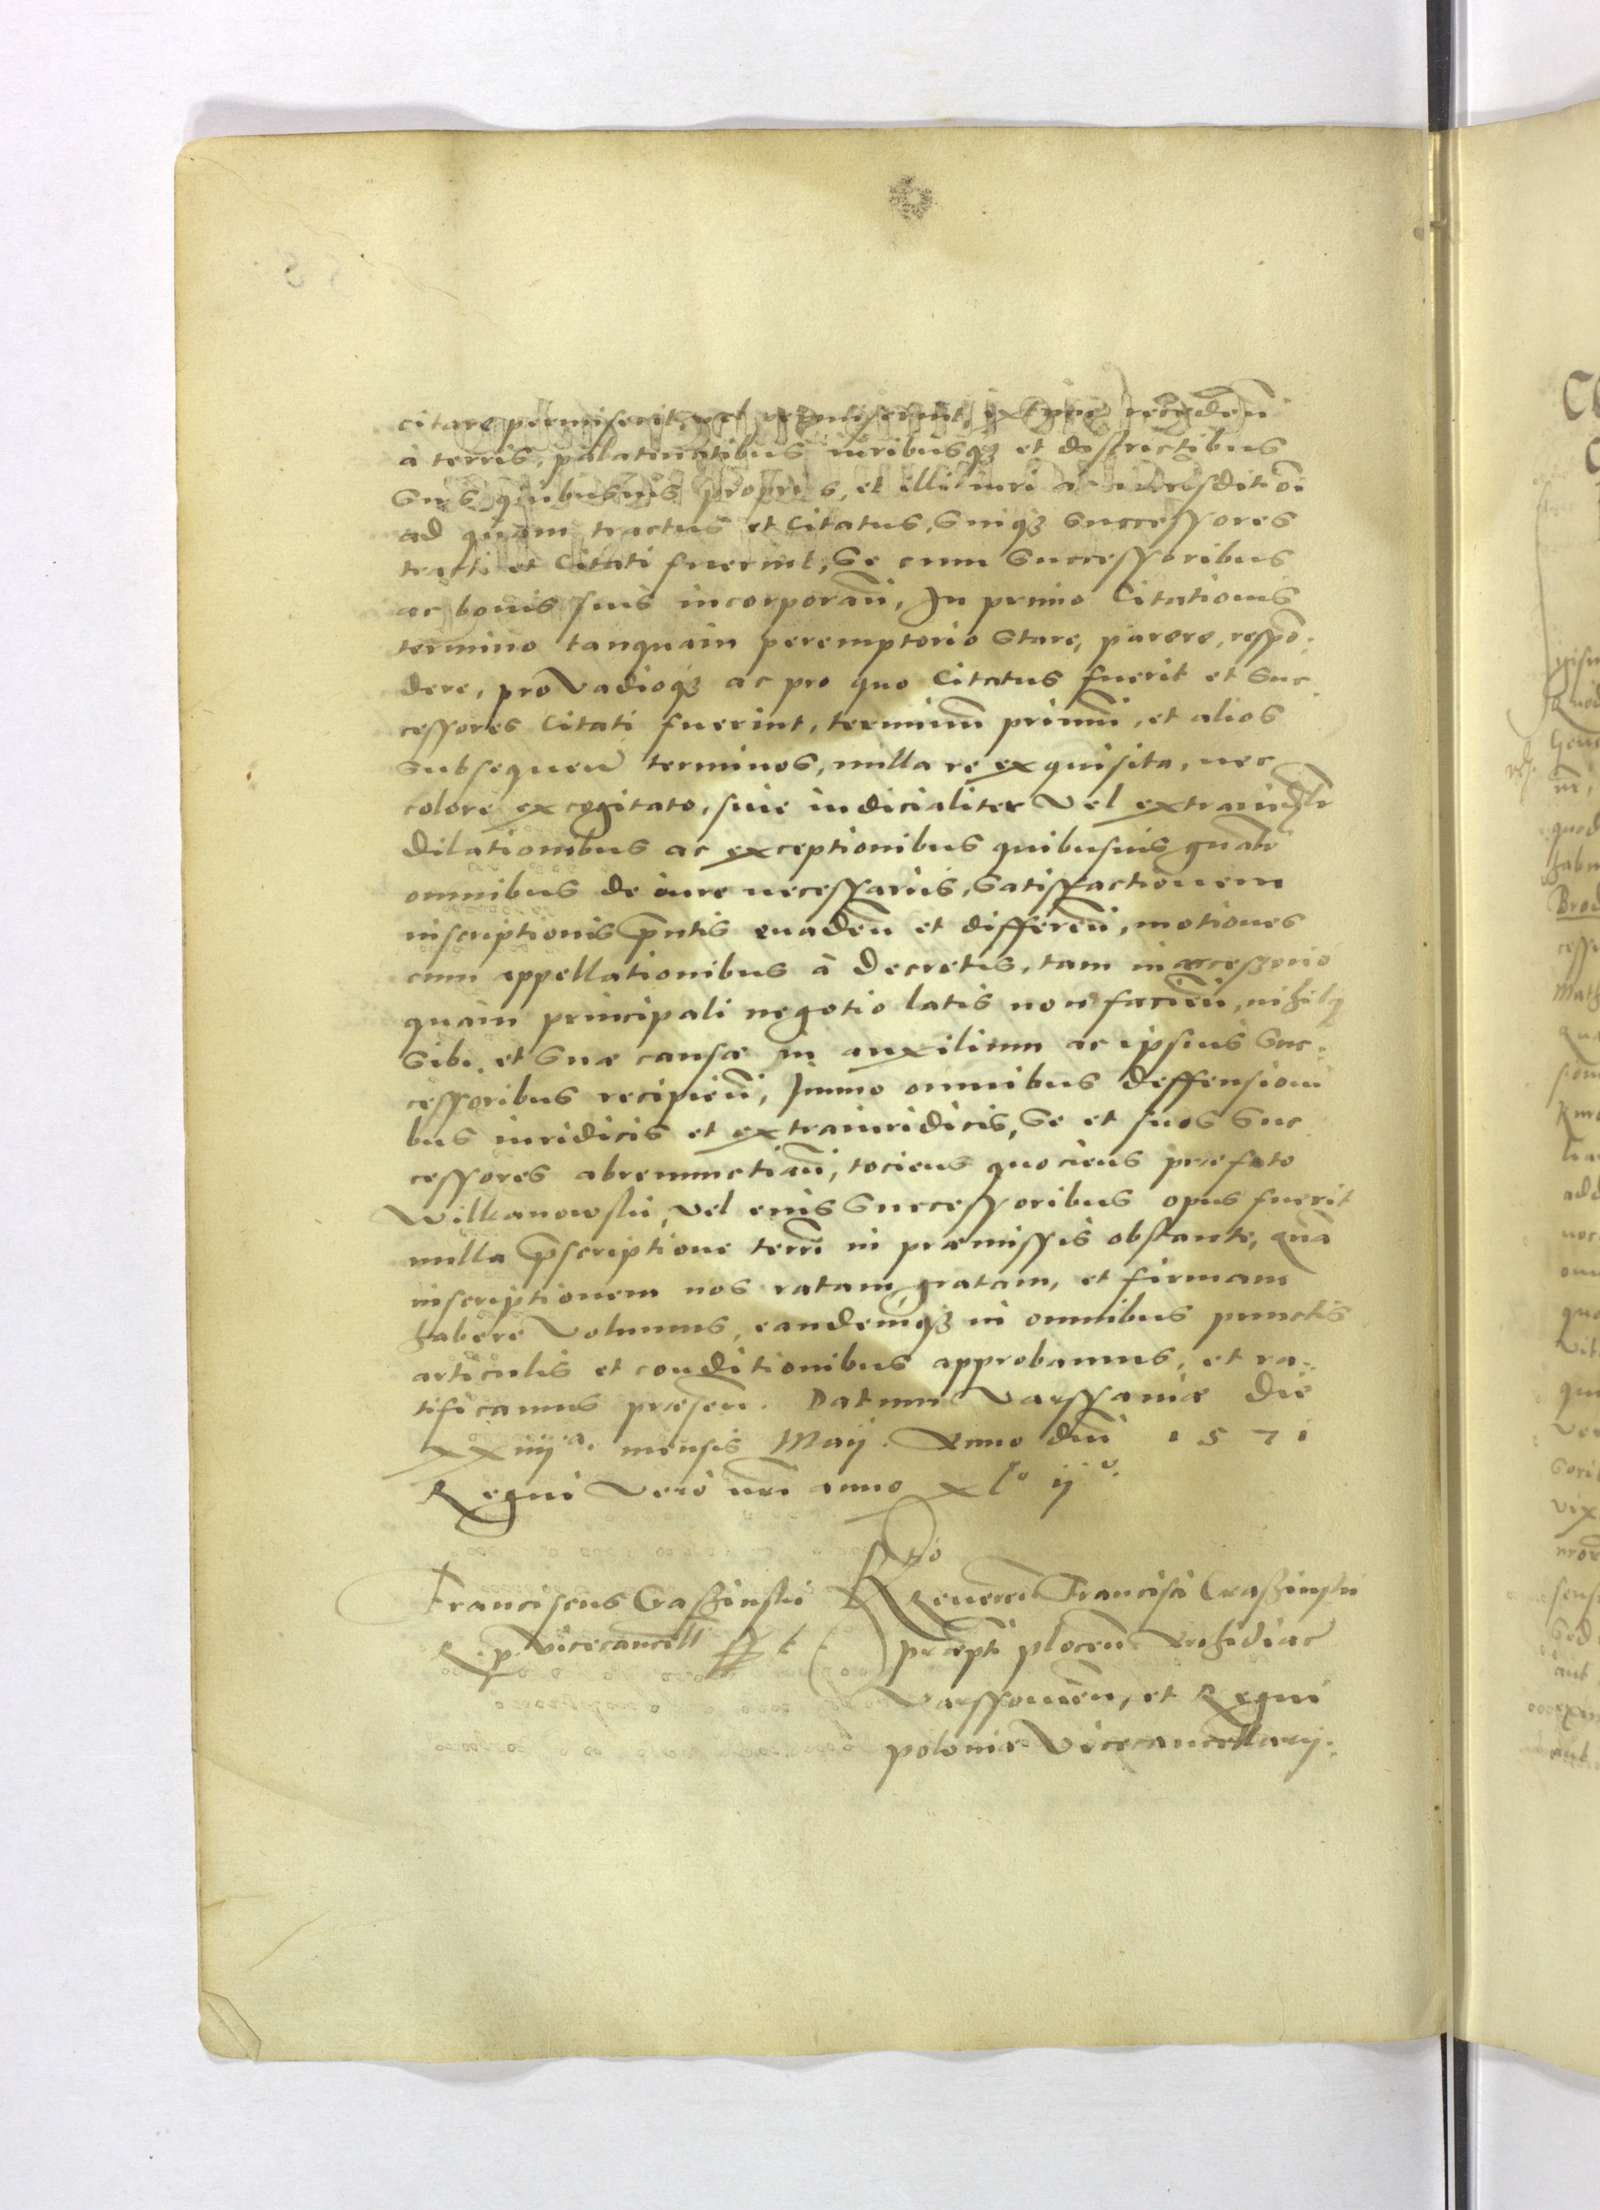 citare permiserit, vel permiserint, ex tunc recedeñ
à terris, palatinatibus iuribusq3 et districtibus
suis quibusuis proprijs, et illi iuri ac iurisditioni
ad quam tractus et Citatus, suiq3 successores
tracti et Citati fuerint, se cum successoribus
ac bonis suis incorporañ, In primo Citationis
termino tanquam peremptorio stare, parere, respõ.
dere, pro vadioq3 ac pro quo Citatus fuerit et suc.
cessores Citati fuerint, terminũ primũ, et alios
subsequeñ terminos, nulla re exquisita, nec
colore excogitato, siue iudicialiter vel extraiudʳ
dilationibus ac exceptionibus quibusuis
omnibus de iure necessarijs, satisfactionem
inscriptionis pñtis euadeñ et differeñ, motiones
cum appellationibus à decretis, tam in accessorio
quam principali negotio latis non facieñ, nihilq3
sibi et suæ causæ in auxilium ac ipsius suc.
cessoribus recipieñ, Immo omnibus deffensioni
bus iuridicis et extraiuridicis, se et suos suc
cessores abrenunctiañ, tociens quociens præfato
Wilkanowski, vel eius successoribus opus fuerit
nulla pscriptione terrũ in præmissis obstante, quã
inscriptionem nos ratam gratam, et firmam
habere volumus, eandemq3 in omnibus punctis
articulis et conditionibus approbamus, et ra.
tificamus præseñ. Datum Varssauiæ die
xxiiijᵃ. mensis Maij. Anno dñi 1571
Regni vero nri anno xlᵒ ijᵒ.
Franciscus Craszinski
R. p. Vicecancell sst
Rlo
Reuerendi Francisci Craszinskij
præpti ploceñ Archidiac
Varssouieñ, et Regni
poloniæ Vicecancellarij.